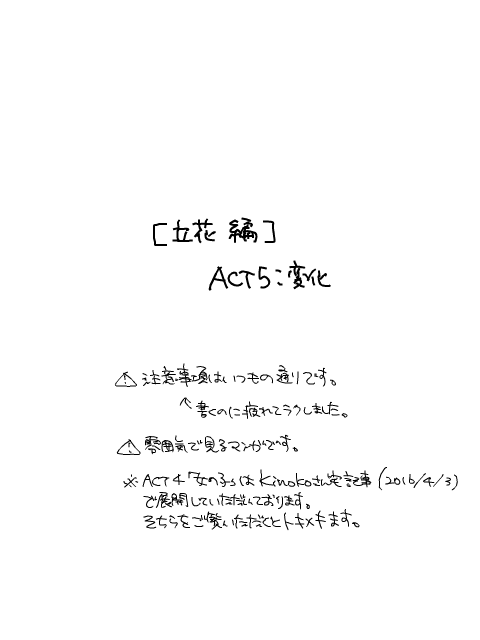 [立花 編]
ACT5:変化
⚠ 注意事項はいつもの通りです。
↑書くのに疲れてラクしました。
⚠ 雰囲気で見るマンガです。
※ ACT4「女の子」はkinokoさん宅記事(2016/4/3)
で展開していただいております。
そちらをご覧いただくとトキメキます。